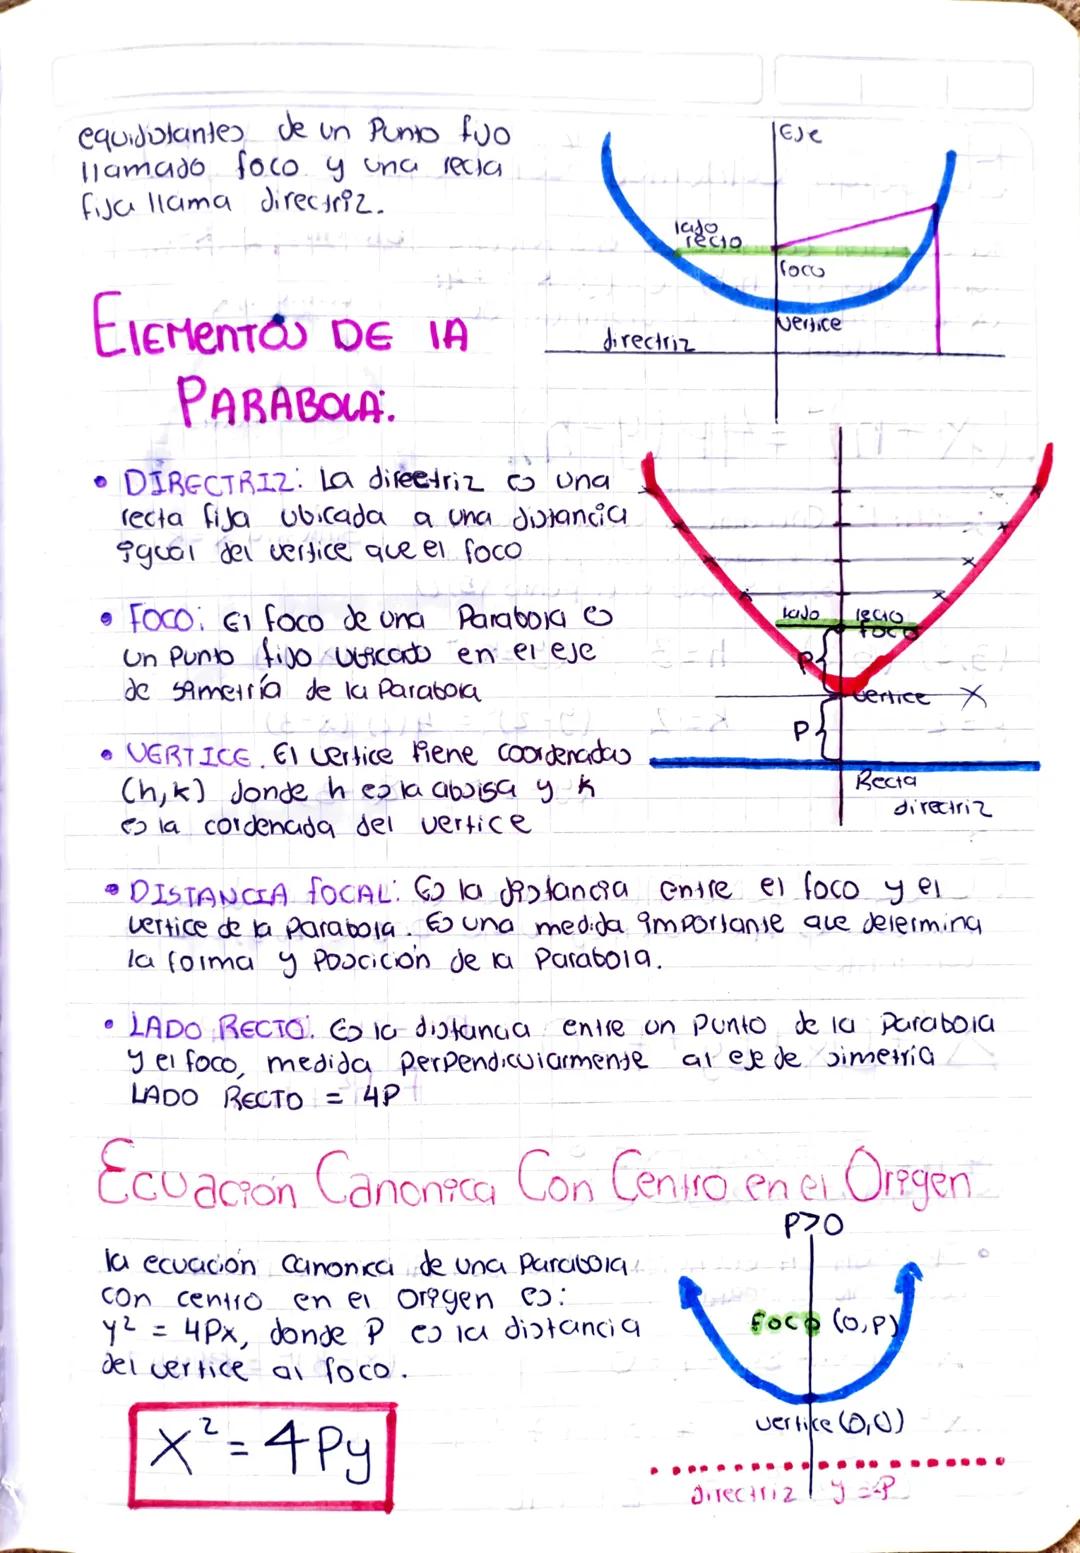 equidistantes de un Punto fijo
llamado foco y una recta
fija llama directriz.
Eje
lado
recto
foco
vertice
directriz
ELEMENTOS DE LA
PARABOLA:
• DIRECTRIZ: La directriz es una
recta fija ubicada a una distancia
igual del vertice que el foco
• FOCO: El foco de una Parabola es
un Punto fijo ubicado en el eje
de simetría de la Parabola
• VERTICE. El vertice tiene coordenadas
(h,k) donde h es la abisisa y k
es la cordenada del vertice
lado recto
foco
P
vertice X
P
Recta
directriz
• DISTANCIA FOCAL: Es la distancia entre el foco y el
vertice de la parabola. Es una medida importante que determina
la forma y Posicición de la Parabola.
• LADO RECTO: Es la distancia entre un Punto de la Parabola
y el foco, medida perpendicularmente al eje de simetría
LADO RECTO = 4P
Ecuación Canonica Con Centro en el Origen
P>0
la ecuación canonica de una Parabola
con centro en el Origen es:
y² = 4Px, donde P es la distancia
del vertice al foco.
X² = 4Py
Foco (0,P)
vertice (0,0)
directriz y=-P